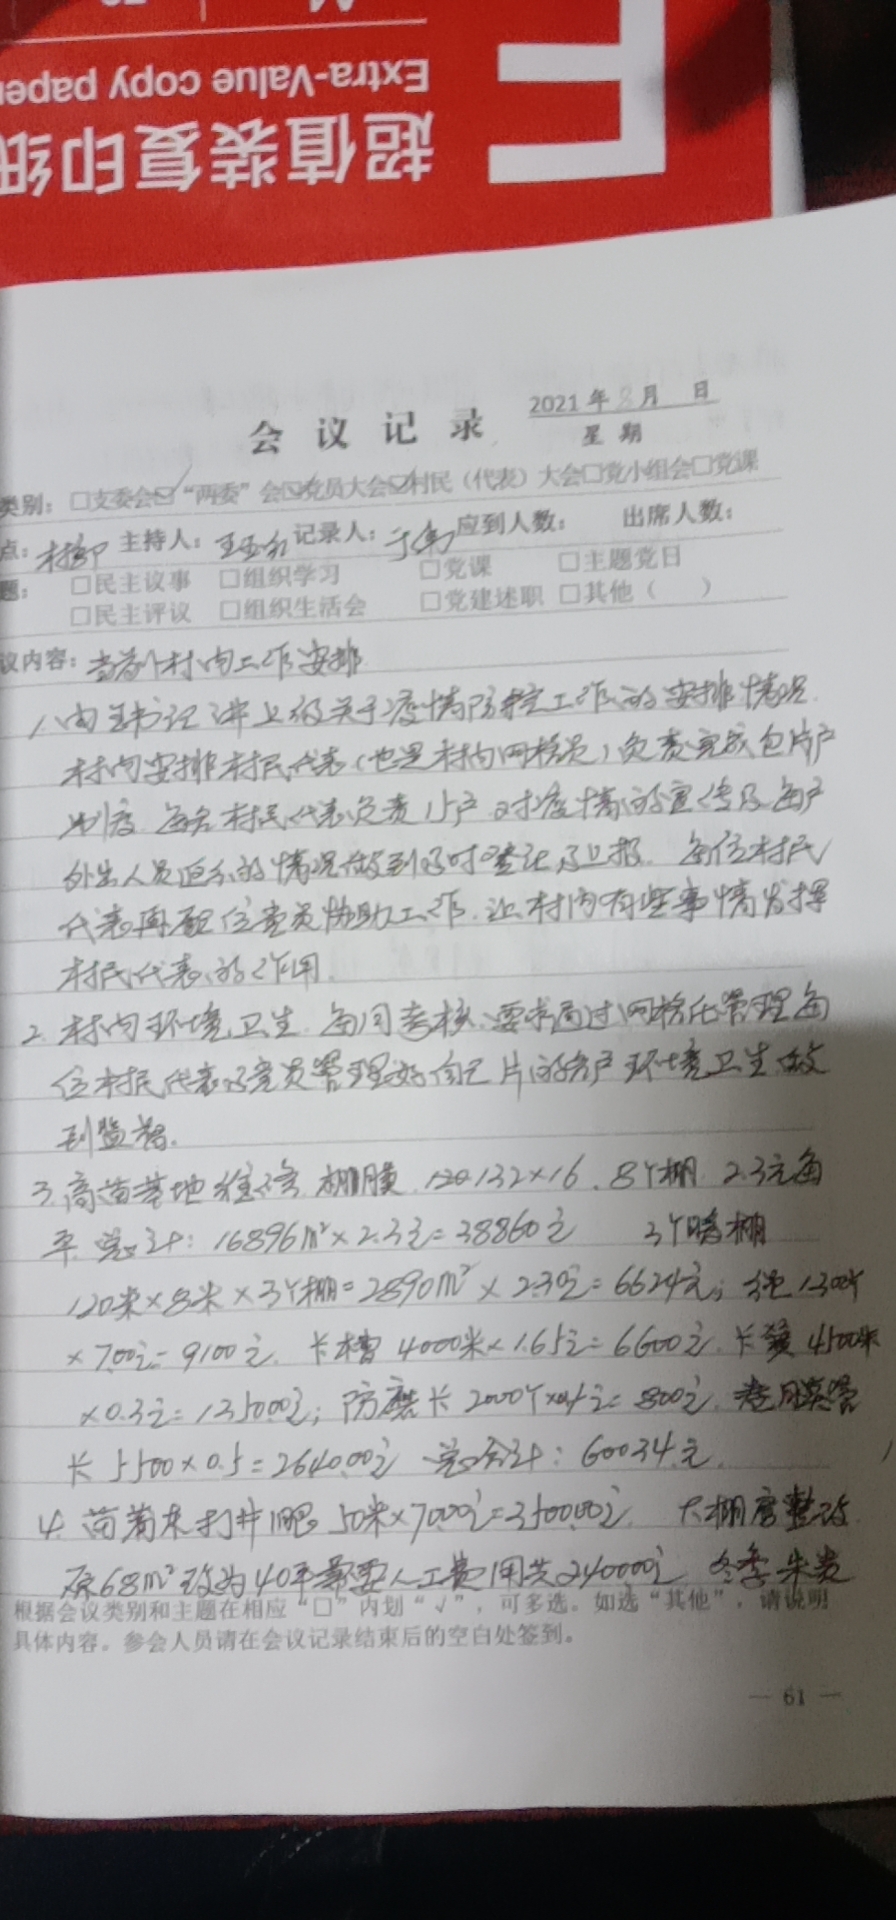 超值装复印纸
Extra-Value copy paper
会议记录
2021年8月 日
星期
类别：□支委会☑“两委”会☑党员大会☑村民（代表）大会□党小组会□党课
点：村部 主持人： 记录人： 应到人数： 出席人数：
题：□民主议事 □组织学习 □党课 □主题党日
□民主评议 □组织生活会 □党建述职 □其他（ ）
议内容：当前村内工作安排
1.由王书记讲上级关于疫情防控工作的安排情况.
村内安排村民代表(也是村内网格员)负责完成包片户
制度.每名村民代表负责15户.对疫情的宣传及每户
外出人员返乡的情况做到及时登记及上报.每位村民
代表再配位党员协助工作.让村内有些事情发挥
村民代表的作用.
2.村内环境卫生.每周考核.要求通过网格化管理每
位村民代表及党员管理好自己片的各户环境卫生.做
到监督.
3.育苗基地维修 棚膜.132×16.8个棚.2.3元每
平.总计:16896m²×2.3元=38860元 3个暖棚
120米×8米×3个棚=2890m²×2.30元=6624元;绳1300个
×7.00元=9100元.卡槽4000米×1.65元=6600元.卡簧4500米
×0.3元=1350.00元;防磨卡2000个×0.4元=800元.卷膜管
卡5500×0.5=2640.00元 总合计:60034元.
4.苗圃东打井1眼50米×70.00元=3500.00元.大棚房整改
原68m²改为40平需要人工费用共2400.00元 冬季
根据会议类别和主题在相应“□”内划“√”，可多选。如选“其他”，请说明
具体内容。参会人员请在会议记录结束后的空白处签到。
— 61 —